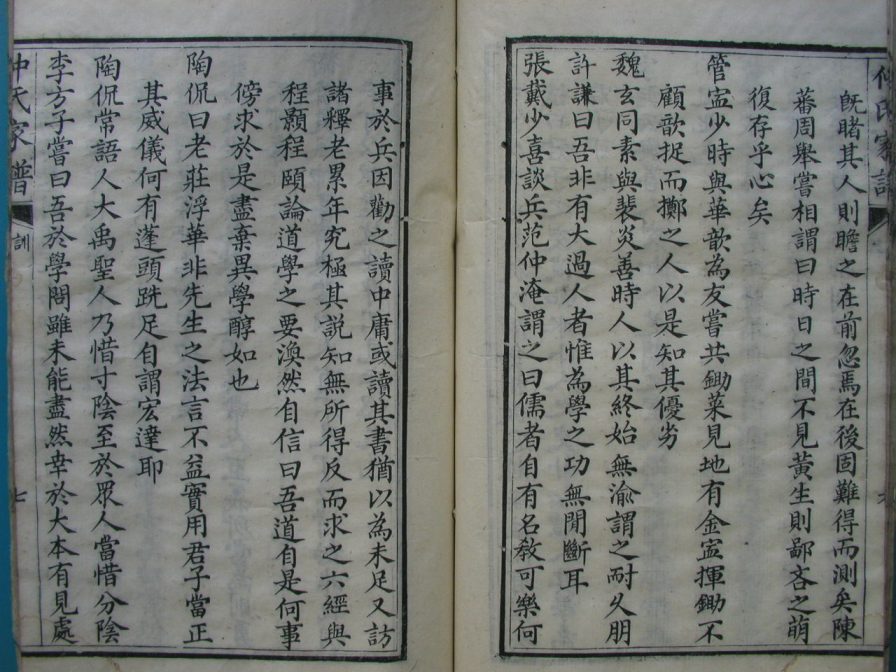 既睹其人則瞻之在前忽焉在後固難得而測矣陳
蕃周舉嘗相謂曰時日之間不見黃生則鄙吝之萌
復存乎心矣
管寍少時與華歆為友嘗共鋤菜見地有金寍揮鋤不
顧歆捉而擲之人以是知其優劣
魏玄同素與裴炎善時人以其終始無渝謂之耐久朋
許謙曰吾非有大過人者惟為學之功無間斷耳
張戴少喜談兵范仲淹謂之曰儒者自有名教可樂何
事於兵因勸之讀中庸或讀其書猶以為未足又訪
諸釋老累年究極其說知無所得反而求之六經與
程顥程頤論道學之要渙然自信曰吾道自是何事
傍求於是盡棄異學醇如也
陶侃曰老莊浮華非先生之法言不益實用君子當正
其威儀何有蓬頭跣足自謂宏達耶
陶侃常語人大禹聖人乃惜寸陰至於眾人當惜分陰
李方子嘗曰吾於學問雖未能盡然幸於大本有見處
仲氏家譜
訓
七